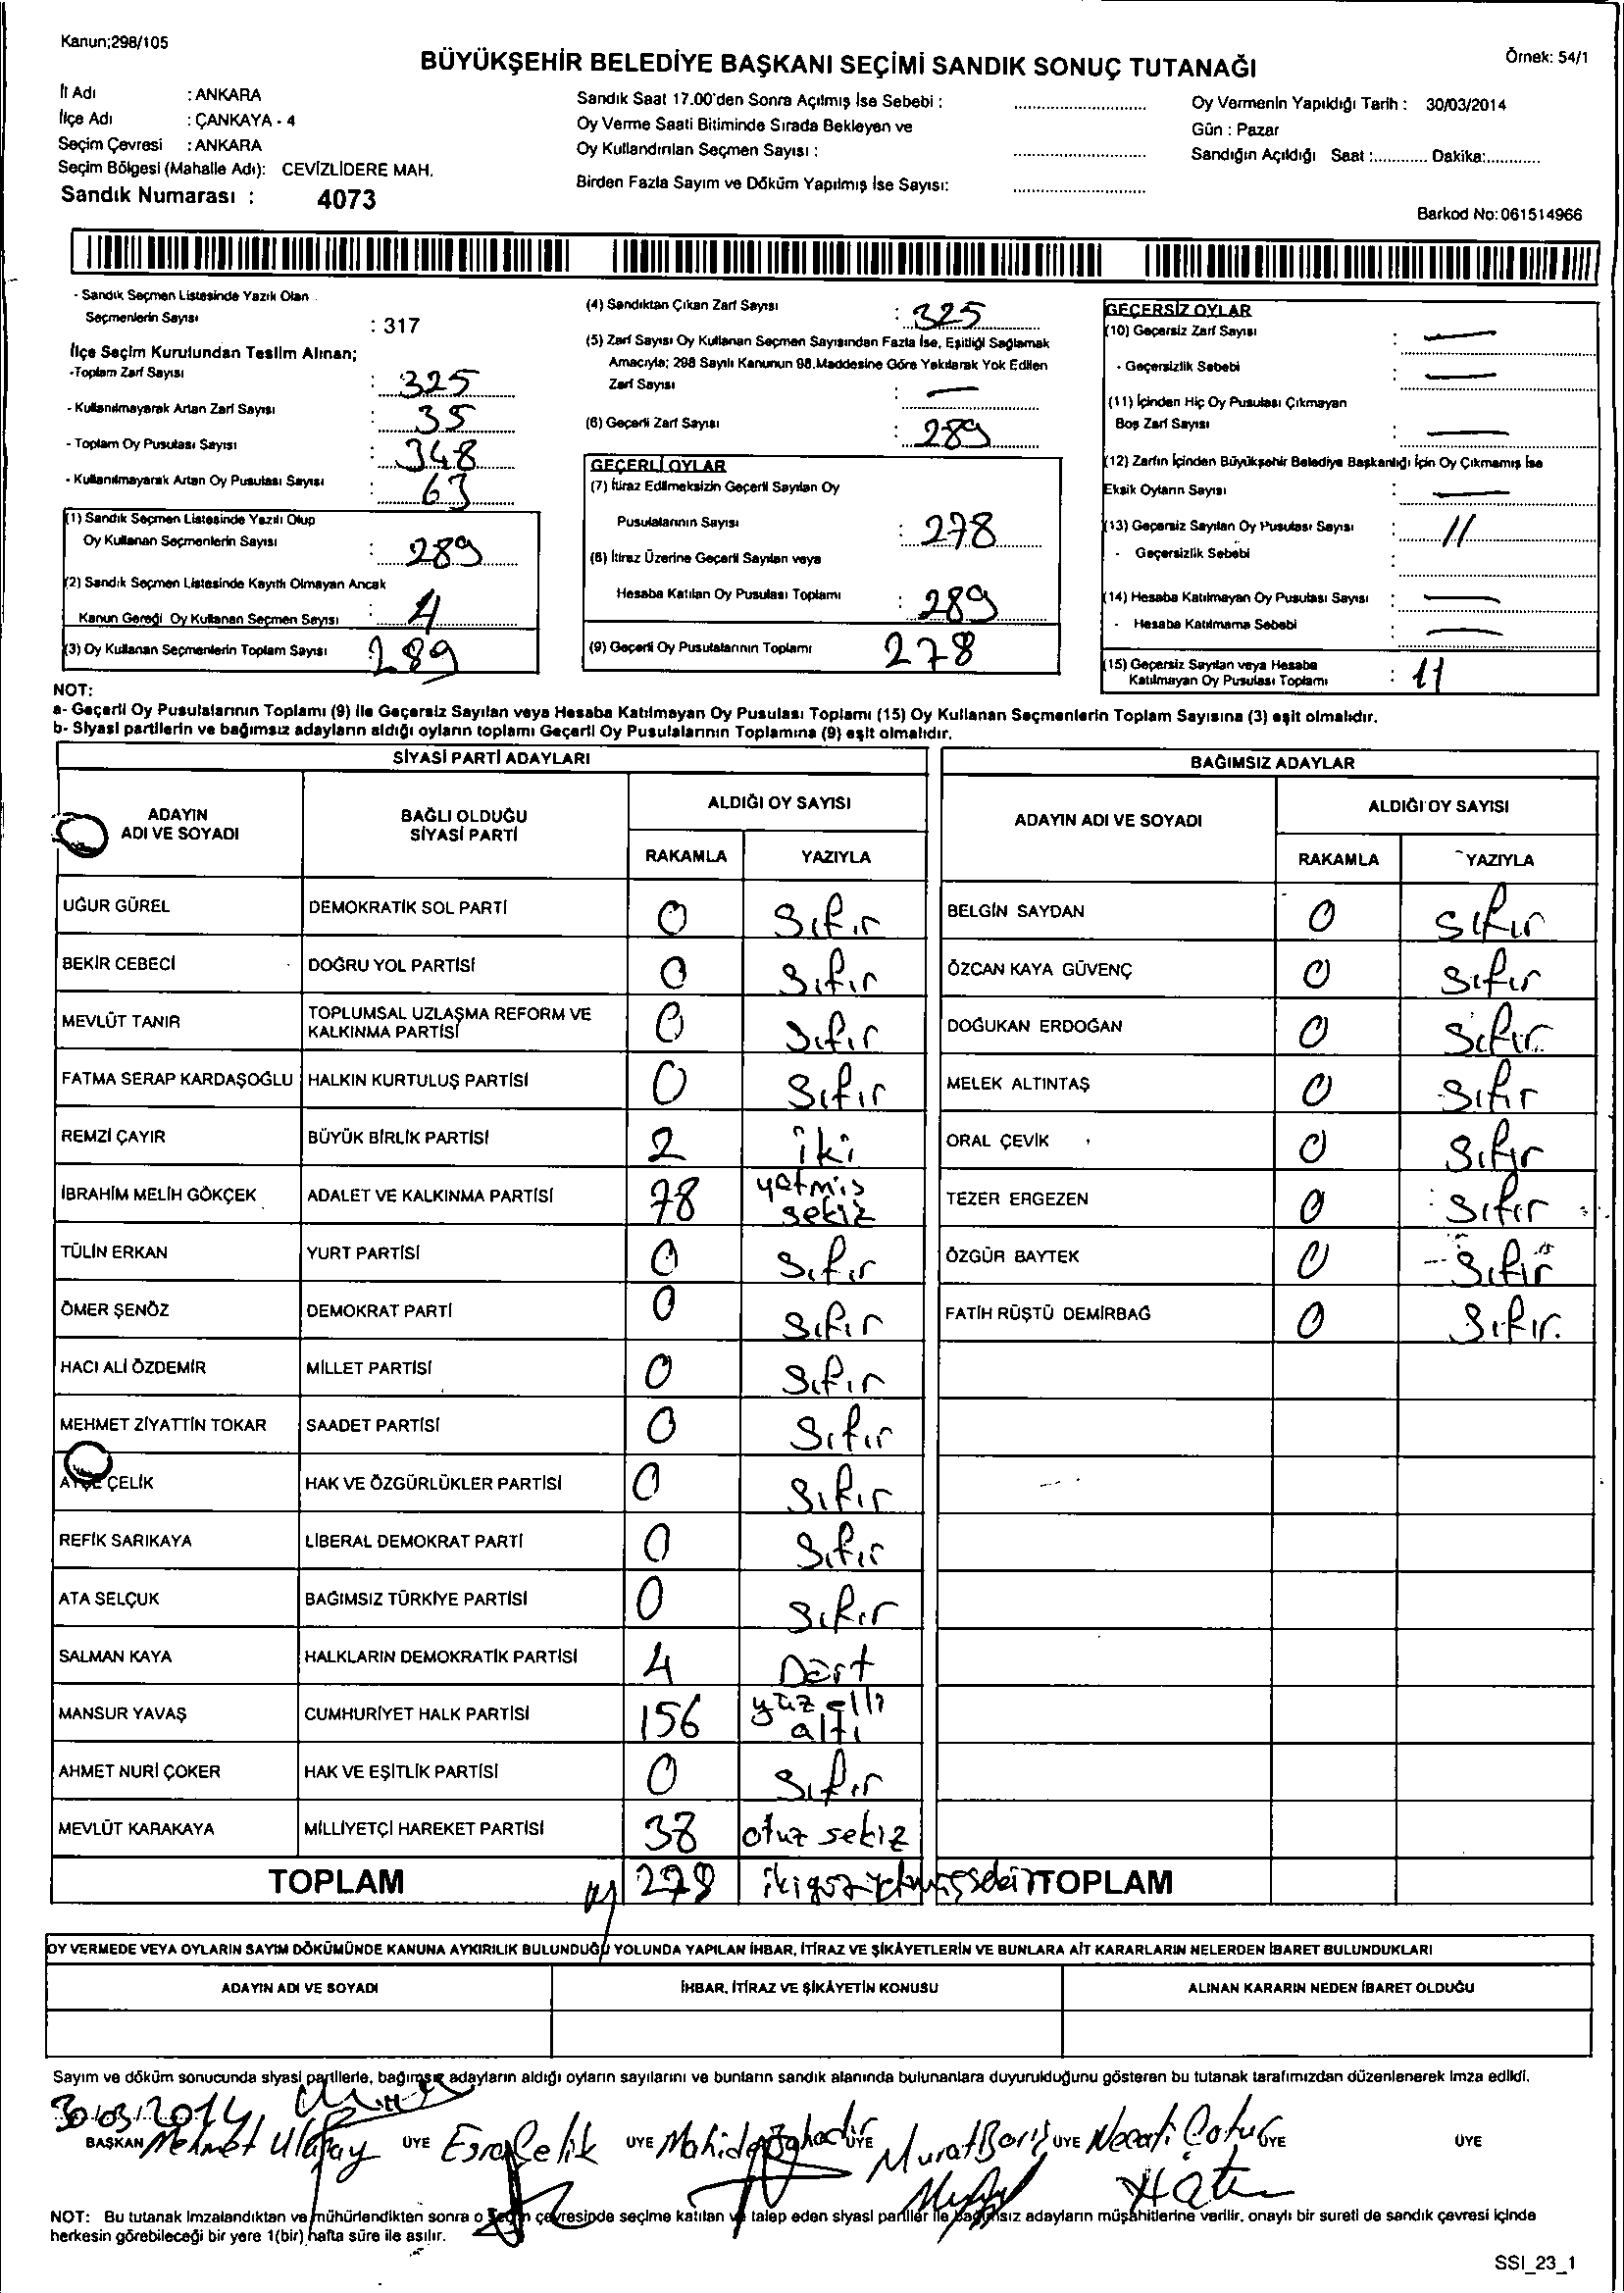 Kanun;298/105
BÜYÜKŞEHİR BELEDİYE BAŞKANI SEÇİMİ SANDIK SONUÇ TUTANAĞI
Örnek: 54/1
İl Adı : ANKARA
İlçe Adı : ÇANKAYA - 4
Seçim Çevresi : ANKARA
Seçim Bölgesi (Mahalle Adı): CEVİZLİDERE MAH.
Sandık Numarası : 4073
Sandık Saat 17.00'den Sonra Açılmış İse Sebebi :
Oy Verme Saati Bitiminde Sırada Bekleyen ve
Oy Kullandırılan Seçmen Sayısı :
Birden Fazla Sayım ve Döküm Yapılmış İse Sayısı:
Oy Vermenin Yapıldığı Tarih : 30/03/2014
Gün : Pazar
Sandığın Açıldığı Saat :............ Dakika:............
Barkod No: 061514966
- Sandık Seçmen Listesinde Yazılı Olan
Seçmenlerin Sayısı : 317
İlçe Seçim Kurulundan Teslim Alınan;
-Toplam Zarf Sayısı : 325
- Kullanılmayarak Artan Zarf Sayısı : 35
- Toplam Oy Pusulası Sayısı : 348
- Kullanılmayarak Artan Oy Pusulası Sayısı : 63
(1) Sandık Seçmen Listesinde Yazılı Olup
Oy Kullanan Seçmenlerin Sayısı : 289
(2) Sandık Seçmen Listesinde Kayıtlı Olmayan Ancak
Kanun Gereği Oy Kullanan Seçmen Sayısı : 4
(3) Oy Kullanan Seçmenlerin Toplam Sayısı 289
(4) Sandıktan Çıkan Zarf Sayısı : 325
(5) Zarf Sayısı Oy Kullanan Seçmen Sayısından Fazla İse, Eşitliği Sağlamak
Amacıyla; 298 Sayılı Kanunun 98.Maddesine Göre Yakılarak Yok Edilen
Zarf Sayısı : —
(6) Geçerli Zarf Sayısı : 289
GEÇERLİ OYLAR
(7) İtiraz Edilmeksizin Geçerli Sayılan Oy
Pusulalarının Sayısı : 278
(8) İtiraz Üzerine Geçerli Sayılan veya
Hesaba Katılan Oy Pusulası Toplamı : 289
(9) Geçerli Oy Pusulalarının Toplamı 278
GEÇERSİZ OYLAR
(10) Geçersiz Zarf Sayısı : —
- Geçersizlik Sebebi : —
(11) İçinden Hiç Oy Pusulası Çıkmayan
Boş Zarf Sayısı : —
(12) Zarfın İçinden Büyükşehir Belediye Başkanlığı İçin Oy Çıkmamış İse
Eksik Oyların Sayısı : —
(13) Geçersiz Sayılan Oy Pusulası Sayısı : 11
- Geçersizlik Sebebi :
(14) Hesaba Katılmayan Oy Pusulası Sayısı : —
- Hesaba Katılmama Sebebi : —
(15) Geçersiz Sayılan veya Hesaba
Katılmayan Oy Pusulası Toplamı : 11
NOT:
a- Geçerli Oy Pusulalarının Toplamı (9) ile Geçersiz Sayılan veya Hesaba Katılmayan Oy Pusulası Toplamı (15) Oy Kullanan Seçmenlerin Toplam Sayısına (3) eşit olmalıdır.
b- Siyasi partilerin ve bağımsız adayların aldığı oyların toplamı Geçerli Oy Pusulalarının Toplamına (9) eşit olmalıdır.
SİYASİ PARTİ ADAYLARI
ADAYIN ADI VE SOYADI BAĞLI OLDUĞU SİYASİ PARTİ ALDIĞI OY SAYISI
RAKAMLA YAZIYLA
UĞUR GÜREL DEMOKRATİK SOL PARTİ 0 Sıfır
BEKİR CEBECİ DOĞRU YOL PARTİSİ 0 Sıfır
MEVLÜT TANIR TOPLUMSAL UZLAŞMA REFORM VE KALKINMA PARTİSİ 0 Sıfır
FATMA SERAP KARDAŞOĞLU HALKIN KURTULUŞ PARTİSİ 0 Sıfır
REMZİ ÇAYIR BÜYÜK BİRLİK PARTİSİ 2 iki
İBRAHİM MELİH GÖKÇEK ADALET VE KALKINMA PARTİSİ 78 yetmis sekiz
TÜLİN ERKAN YURT PARTİSİ 0 Sıfır
ÖMER ŞENÖZ DEMOKRAT PARTİ 0 Sıfır
HACI ALİ ÖZDEMİR MİLLET PARTİSİ 0 Sıfır
MEHMET ZİYATTİN TOKAR SAADET PARTİSİ 0 Sıfır
AYŞE ÇELİK HAK VE ÖZGÜRLÜKLER PARTİSİ 0 Sıfır
REFİK SARIKAYA LİBERAL DEMOKRAT PARTİ 0 Sıfır
ATA SELÇUK BAĞIMSIZ TÜRKİYE PARTİSİ 0 Sıfır
SALMAN KAYA HALKLARIN DEMOKRATİK PARTİSİ 4 Dört
MANSUR YAVAŞ CUMHURİYET HALK PARTİSİ 156 yüz elli altı
AHMET NURİ ÇOKER HAK VE EŞİTLİK PARTİSİ 0 Sıfır
MEVLÜT KARAKAYA MİLLİYETÇİ HAREKET PARTİSİ 38 otuz sekiz
TOPLAM 278
BAĞIMSIZ ADAYLAR
ADAYIN ADI VE SOYADI ALDIĞI OY SAYISI
RAKAMLA YAZIYLA
BELGİN SAYDAN 0 Sıfır
ÖZCAN KAYA GÜVENÇ 0 Sıfır
DOĞUKAN ERDOĞAN 0 Sıfır
MELEK ALTINTAŞ 0 Sıfır
ORAL ÇEVİK 0 Sıfır
TEZER ERGEZEN 0 Sıfır
ÖZGÜR BAYTEK 0 Sıfır
FATİH RÜŞTÜ DEMİRBAĞ 0 Sıfır.
TOPLAM
OY VERMEDE VEYA OYLARIN SAYIM DÖKÜMÜNDE KANUNA AYKIRILIK BULUNDUĞU YOLUNDA YAPILAN İHBAR, İTİRAZ VE ŞİKÂYETLERİN VE BUNLARA AİT KARARLARIN NELERDEN İBARET BULUNDUKLARI
ADAYIN ADI VE SOYADI İHBAR, İTİRAZ VE ŞİKÂYETİN KONUSU ALINAN KARARIN NEDEN İBARET OLDUĞU
Sayım ve döküm sonucunda siyasi partilerle, bağımsız adayların aldığı oyların sayılarını ve bunların sandık alanında bulunanlara duyurulduğunu gösteren bu tutanak tarafımızdan düzenlenerek imza edildi.
30/03/2014
BAŞKAN Mehmet ÜYE Esra Çelik ÜYE ÜYE Murat ÜYE Necati ÜYE ÜYE
NOT: Bu tutanak imzalandıktan ve mühürlendikten sonra o seçim çevresinde seçime katılan ve talep eden siyasi partiler ile bağımsız adayların müşahitlerine verilir, onaylı bir sureti de sandık çevresi içinde
herkesin görebileceği bir yere 1(bir) hafta süre ile asılır.
SSI_23_1